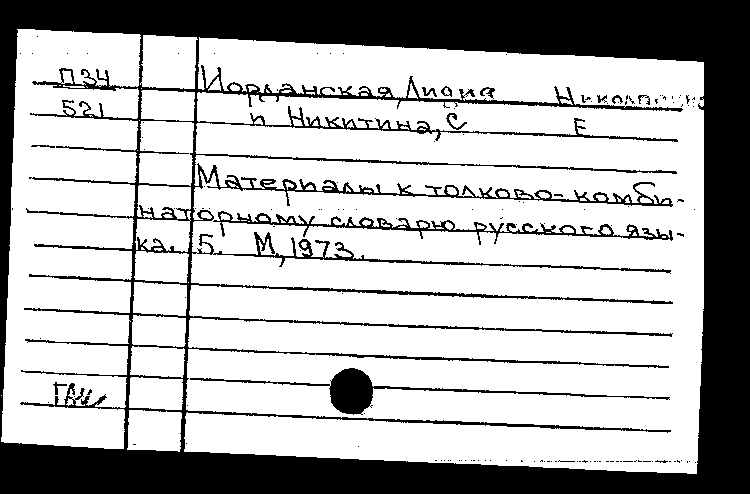 П34 Иорданская, Лидия Николаевна
521 и Никитина, С Е
Материалы к толково-комби-
наторному словарю русского язы-
ка. 5. М, 1973.